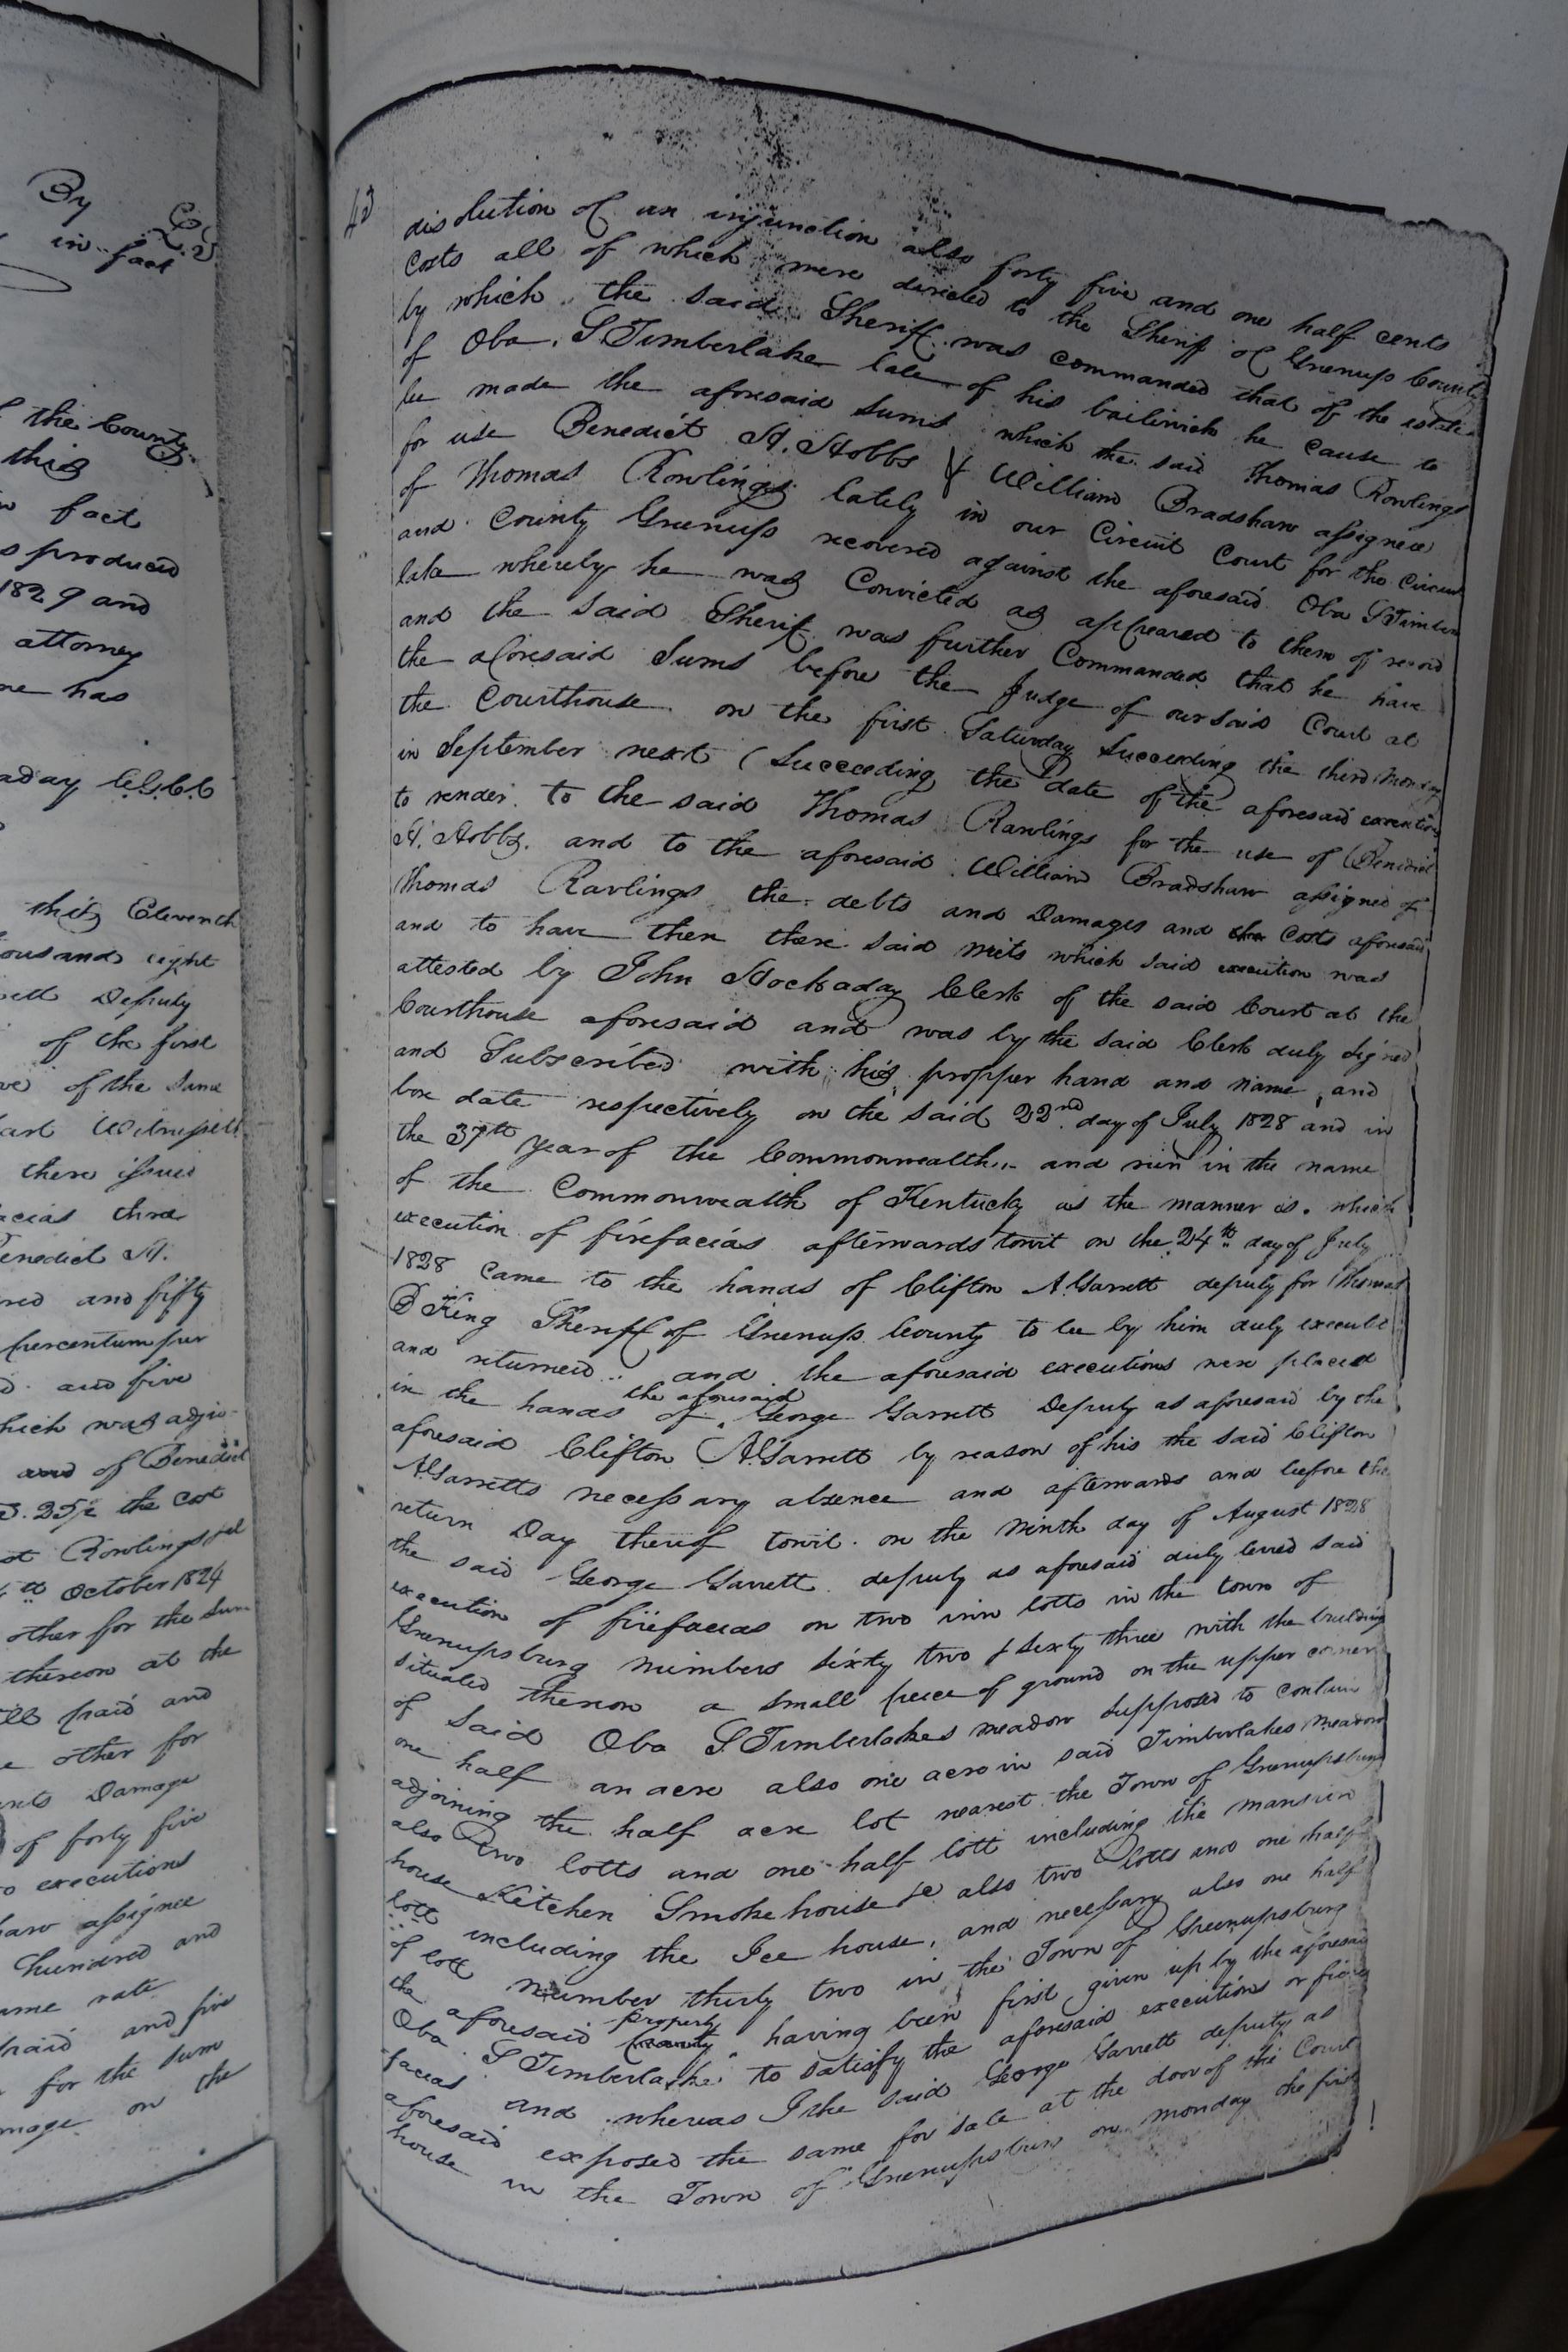 By
in fact
f the County
this
fact
s produced
1829 and
attorney
me has
aday C.G.C.C
this Eleventh
ousand eight
ett Deputy
of the first
of the same
Witnesseth
there issued
facias three
enedict H.
red and fifty
percentum per
and five
which was adju-
and of Benedict
the Cost
Rowlings
October 1824
other for the Sum
thereon at the
paid and
other for
ents Damage
of forty five
executions
haw assignee
hundred and
same rate
paid and five
for the sum
mage on the
43
disolution of an injunction also forty five and one half cents
Costs all of which were directed to the Sherif of Greenup County
by which the said Sheriff was commanded that of the estate
of Oba. S Timberlake late of his bailiwick he cause to
be made the aforesaid sums which the said Thomas Rowlings
for use Benedict H. Hobbs & William Bradshaw assignee
of Thomas Rowlings lately in our Circuit Court for the Circuit
and County Greenup recovered against the aforesaid Oba S Timber
lake whereby he was Convicted as appeared to them of record
and the said Sherif was further Commanded that he have
the aforesaid Sums before the Judge of our said Court at
the Courthouse on the first Saturday Succeeding the third Monday
in September next (Succeeding the date of the aforesaid execution
to render to the said Thomas Rawlings for the use of Benedict
H. Hobbs. and to the aforesaid William Bradshaw assigned of
Thomas Ravlings the debts and Damages and the Costs aforesaid
and to have then there said writs which said execution was
attested by John Hockaday Clerk of the said Court at the
Courthouse aforesaid and was by the said Clerk duly signed
and Subscribed with his propper hand and name, and
bore date respectively on the said 22nd day of July 1828 and in
the 37th year of the Commonwealth and run in the name
of the Commonwealth of Kentucky as the manner is. which
execution of firefacias afterwards towit on the 24th day of July
1828 came to the hands of Clifton A. Garrett deputy for Thomas
B King Sheriff of Greenup County to be by him duly execute
and returned and the aforesaid executions were placed
in the hands of the aforesaid George Garrett Deputy as aforesaid by the
aforesaid Clifton A. Garrett by reason of his the said Clifton
A. Garretts necessary absence and afterwards and before the
return Day thereof towit. on the Ninth day of August 1828
the said George Garrett deputy as aforesaid duly levied said
execution of firefacias on two inn lotts in the town of
Greenupsburg numbers sixty two & sixty three with the building
situated thereon a small peice of ground on the upper corner
of said Oba S. Timberlakes meadow supposed to contain
one half an acre also one acre in said Timberlakes Meadow
adjoining the half acre lot nearest the Town of Greenupsburg
also Two lotts and one half lott including the mansion
house Kitchen Smoke house &c also two lotts and one half
lott including the Ice house, and necessary also one half
of lott number thirty two in the Town of Greenupsburg
the aforesaid property having been first given up by the aforesaid
Oba S Timberlake to satisfy the aforesaid executions or firie
facias and whereas I the said George Garrett deputy as
aforesaid exposed the same for sale at the door of the Court
house in the Town of Greenupsburg on monday the first